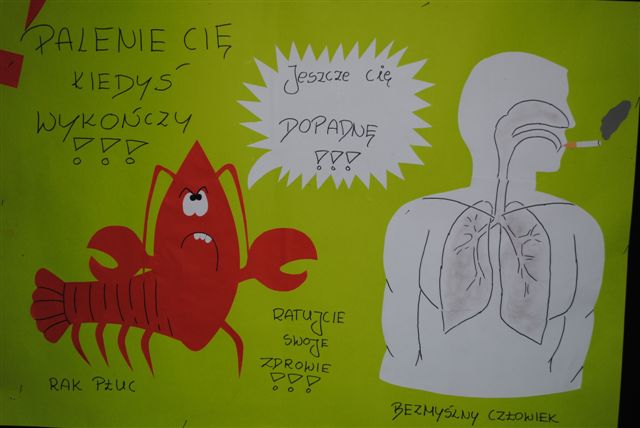 PALENIE CIĘ
KIEDYŚ
WYKOŃCZY
!!!
Jeszcze cię
DOPADNĘ
!!!
RATUJCIE
SWOJE
ZDROWIE
!!!
RAK PŁUC
BEZMYŚLNY CZŁOWIEK